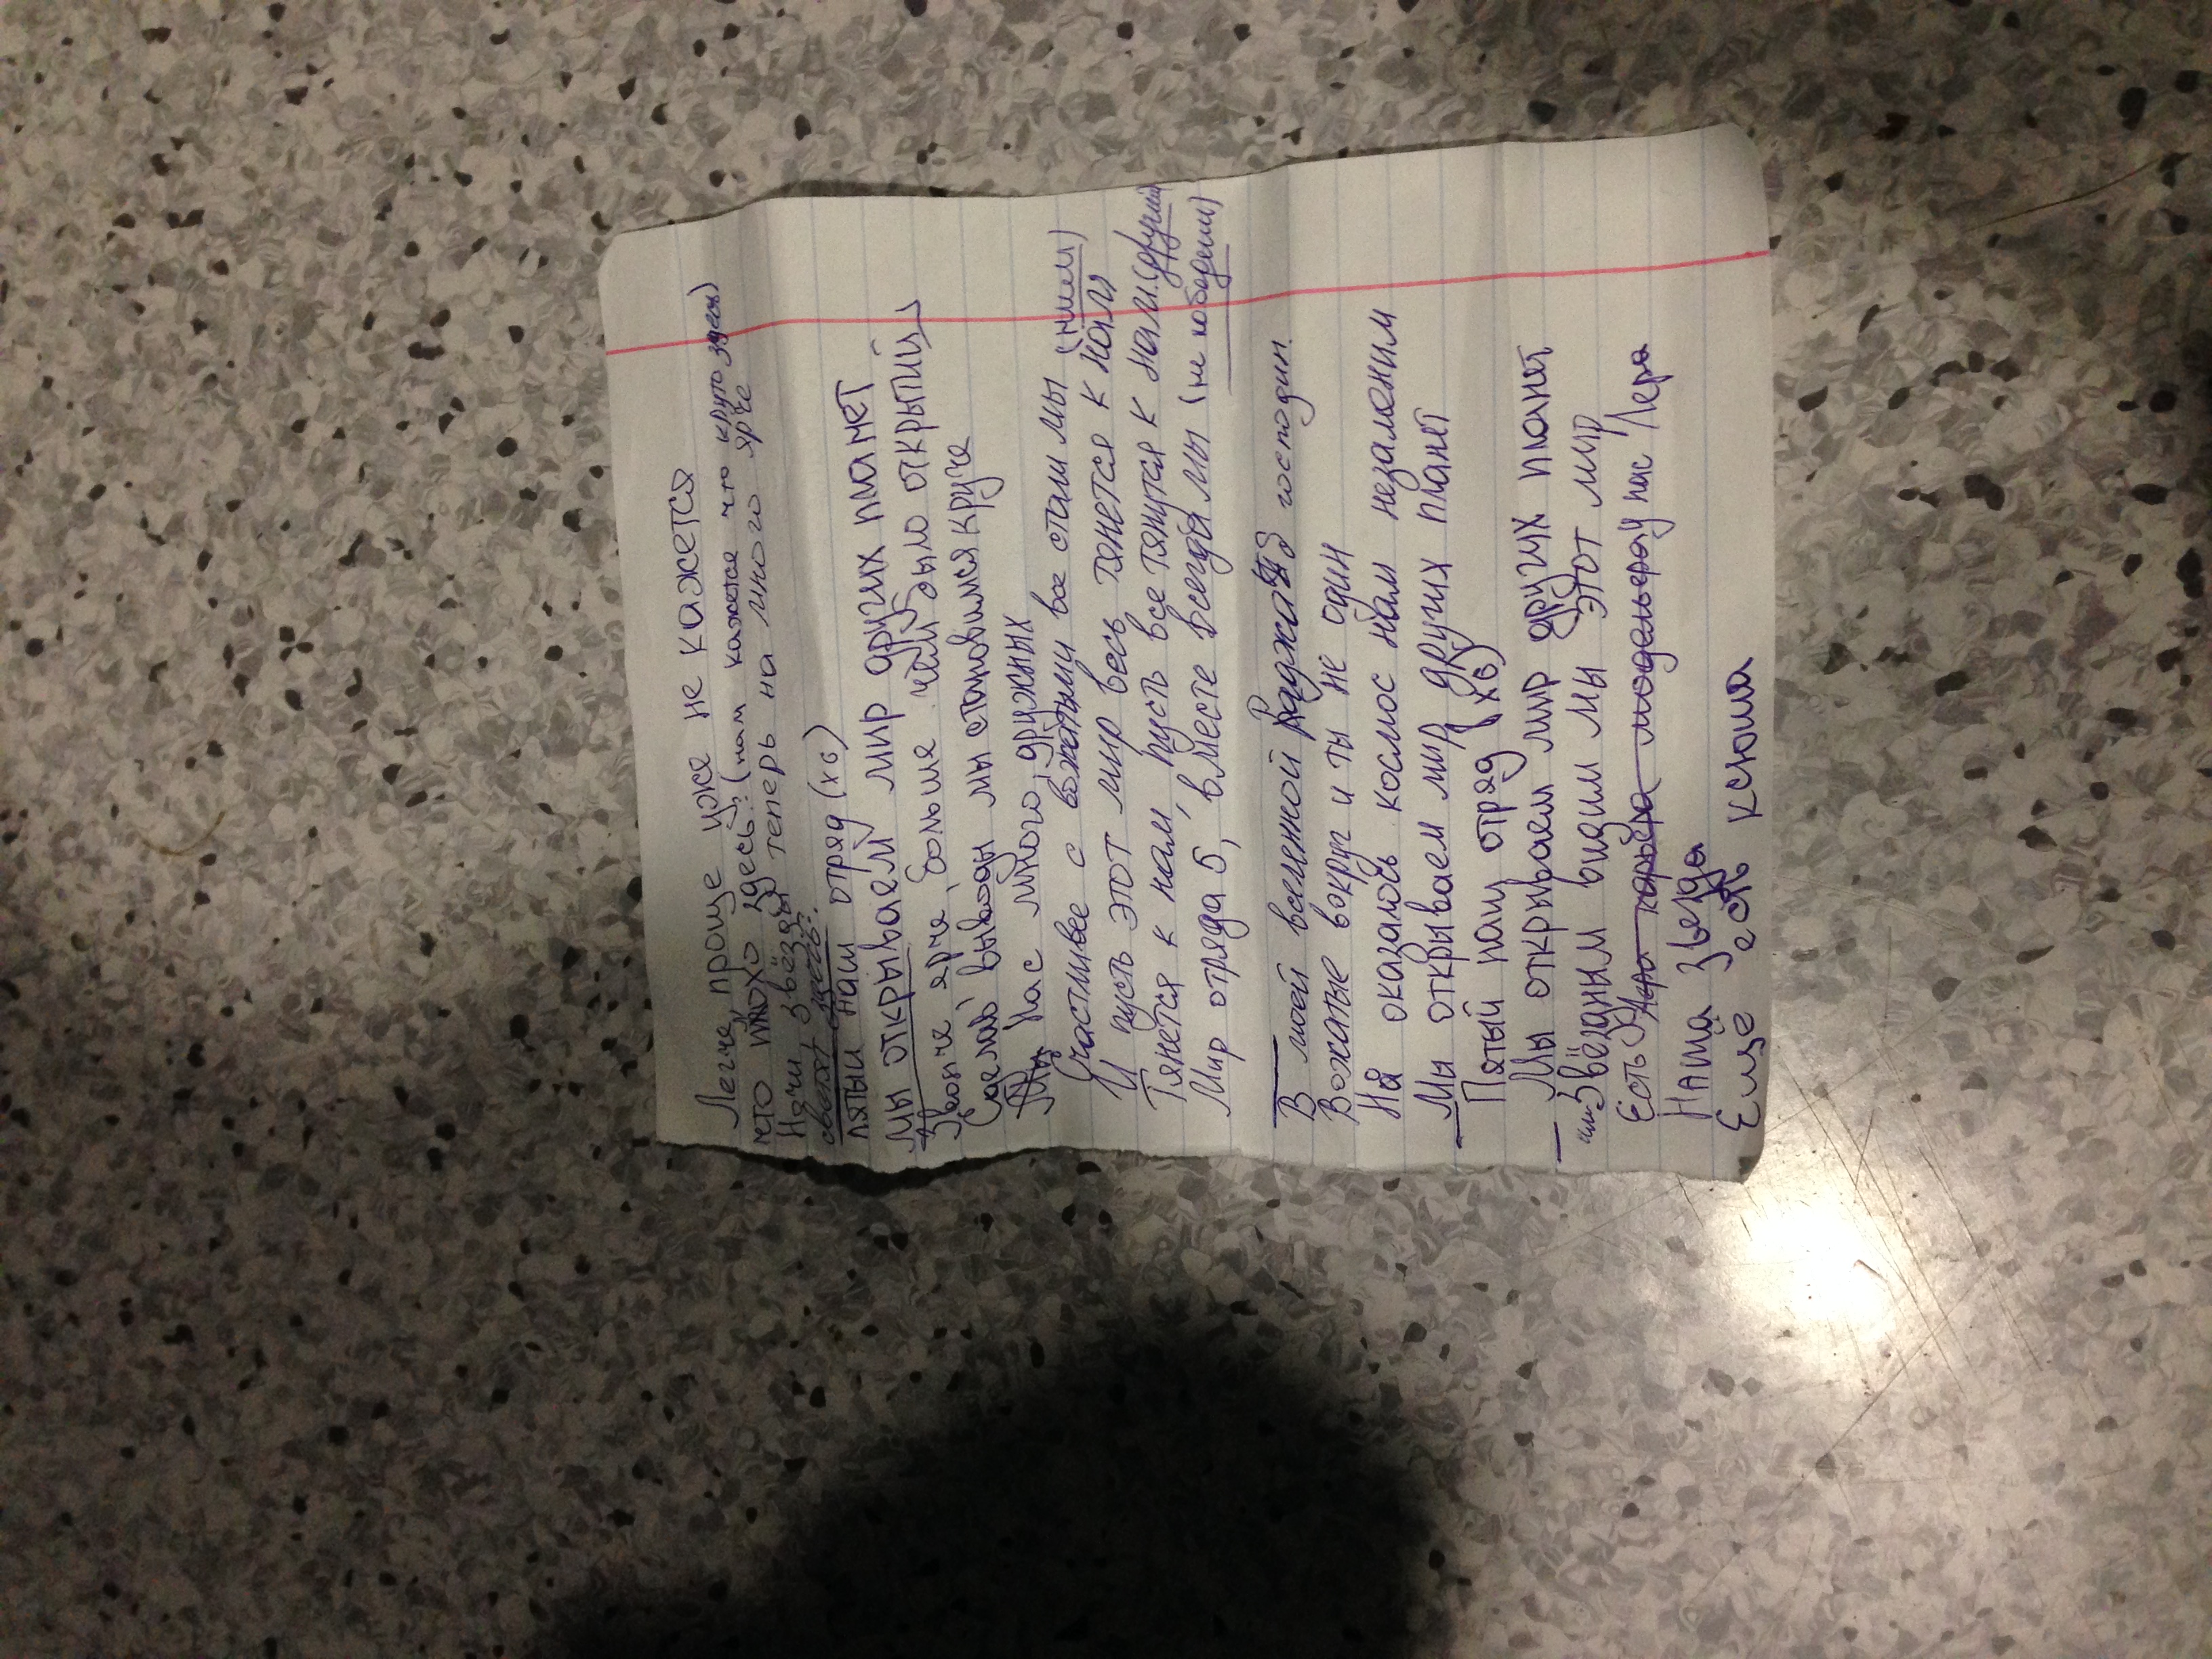 Легче, проще уже не кажется
что плохо здесь: (нам кажется что круто здесь)
Ночи, звёзды теперь на много ярче
светят здесь:
пятый наш отряд (х6)
мы открываем мир других планет
Звонче, ярче, больше чем было открытий
Сделав выводы мы становимся круче
Нас много, дружных
Счастливее с вожатыми все стали мы (ними)
И пусть этот мир весь тянется к нам
Тянется к нам, пусть все тянутся к нам.
Мир отряда 5, вместе всегда мы
В моей вселенной господин.
Вожатые вокруг и ты не один
оказалось космос нам незаменим
Мы открываем мир других планет
Пятый наш отряд (х6)
Мы открываем мир других планет
Звёздным видим мы этот мир
Есть у нас Лера
Наша звезда
Ещё есть ксюша